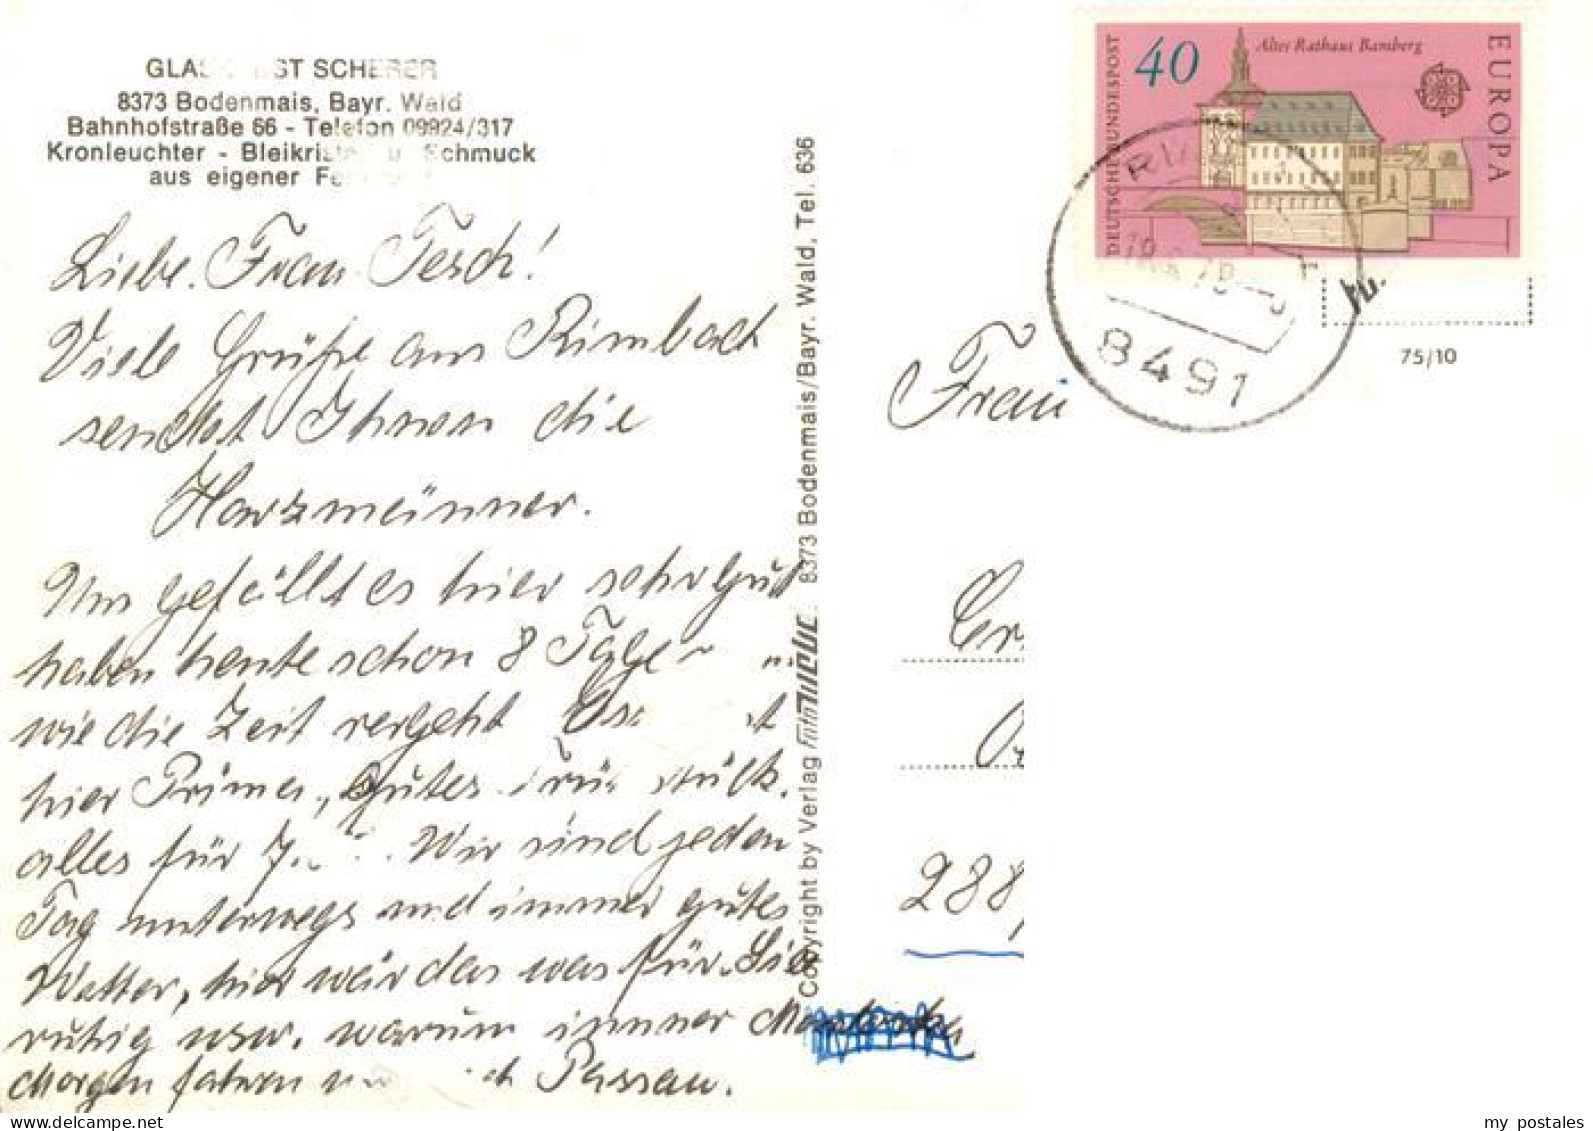 GLAS ST SCHERER
8373 Bodenmais, Bayr. Wald
Bahnhofstraße 66 - Telefon 09924/317
Kronleuchter - Bleikristall u. Schmuck
aus eigener
Liebe Frau Tesch!
Viele Grüße aus Rimbach
sendet Ihnen die
Harzmänner.
Uns gefällt es hier sehr gut
haben heute schon 8 Tage
wie die Zeit vergeht
hier Prima, gutes Frühstück.
alles für 7. Wir sind jeden
Tag unterwegs und immer gutes
Wetter, hier wär das was für Sie
ruhig usw. warum immer
Morgen fahren nach Passau.
Copyright by Verlag 8373 Bodenmais/Bayr. Wald, Tel. 636
40
Altes Rathaus Bamberg
EUROPA
DEUTSCHE BUNDESPOST
8491
75/10
Frau
288
my postales